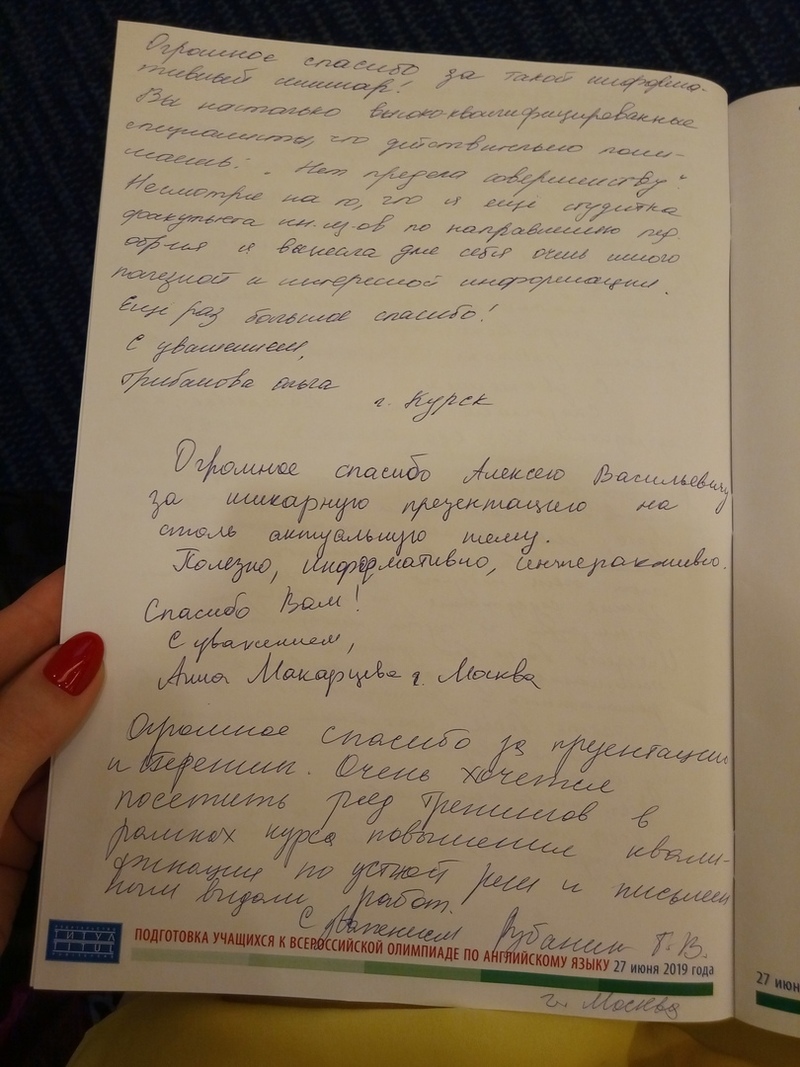 Огромное спасибо за такой информа-
тивный семинар!
Вы настолько высоко-квалифицированные
специалисты, что действительно пони-
маешь: „Нет предела совершенству“
Несмотря на то, что я еще студентка
факультета ин.яз-ов по направлению пед.
обр-ия я вынесла для себя очень много
полезной и интересной информации.
Еще раз большое спасибо!
С уважением,
Грибанова Ольга
г. Курск
Огромное спасибо Алексею Васильевичу
за шикарную презентацию на
столь актуальную тему.
Полезно, информативно, интерактивно.
Спасибо Вам!
С уважением,
Анна Макарцева г. Москва
Огромное спасибо за презентацию
и тренинг. Очень хочется
посетить ряд тренингов в
рамках курса повышения квали-
фикации по устной речи и письмен
ным видам работ.
С уважением Рубаник Г. В.
ИЗДАТЕЛЬСТВО
ТИТУЛ
TITUL
PUBLISHERS
ПОДГОТОВКА УЧАЩИХСЯ К ВСЕРОССИЙСКОЙ ОЛИМПИАДЕ ПО АНГЛИЙСКОМУ ЯЗЫКУ 27 июня 2019 года
г. Москва
27 июн